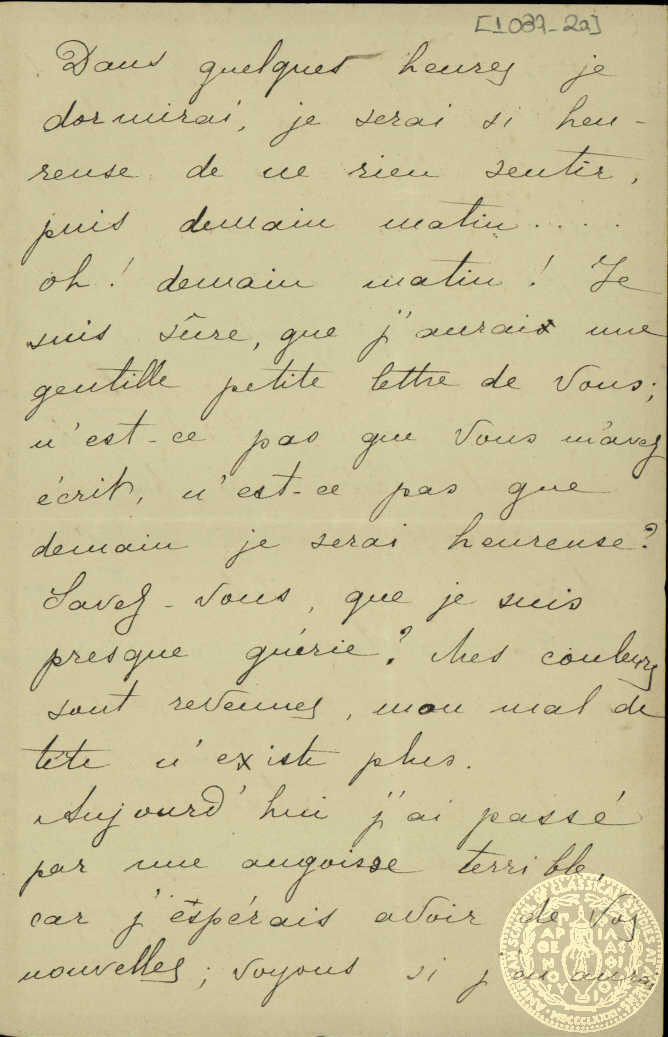 [1037-2a]
Dans quelques heures je
dormirai, je serai si heu-
reuse de ne rien sentir,
puis demain matin.....
oh! demain matin! Je
suis sûre, que j'aurais une
gentille petite lettre de Vous;
n'est-ce pas que Vous m'avez
écrit, n'est-ce pas que
demain je serai heureuse?
Savez-vous, que je suis
presque guérie? Mes couleurs
sont revenues, mon mal de
tête n'existe plus.
Aujourd'hui j'ai passé
par une angoisse terrible,
car j'espérais avoir de Vos
nouvelles; voyons si j'en aurai
AMERICAN SCHOOL OF CLASSICAL STUDIES AT ATHENS
ΠΑΡΘΕΝΟΥ
ΦΙΛΑΣ
MDCCCLXXXI